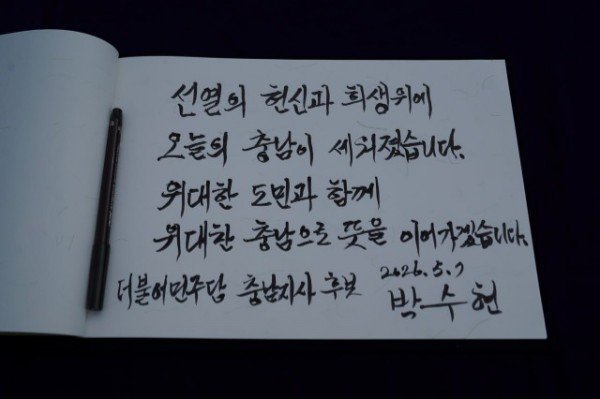 선열의 헌신과 희생위에
오늘의 충남이 세워졌습니다.
위대한 도민과 함께
위대한 충남으로 뜻을 이어가겠습니다.
2026. 5. 7
더불어민주당 충남지사 후보 박수현